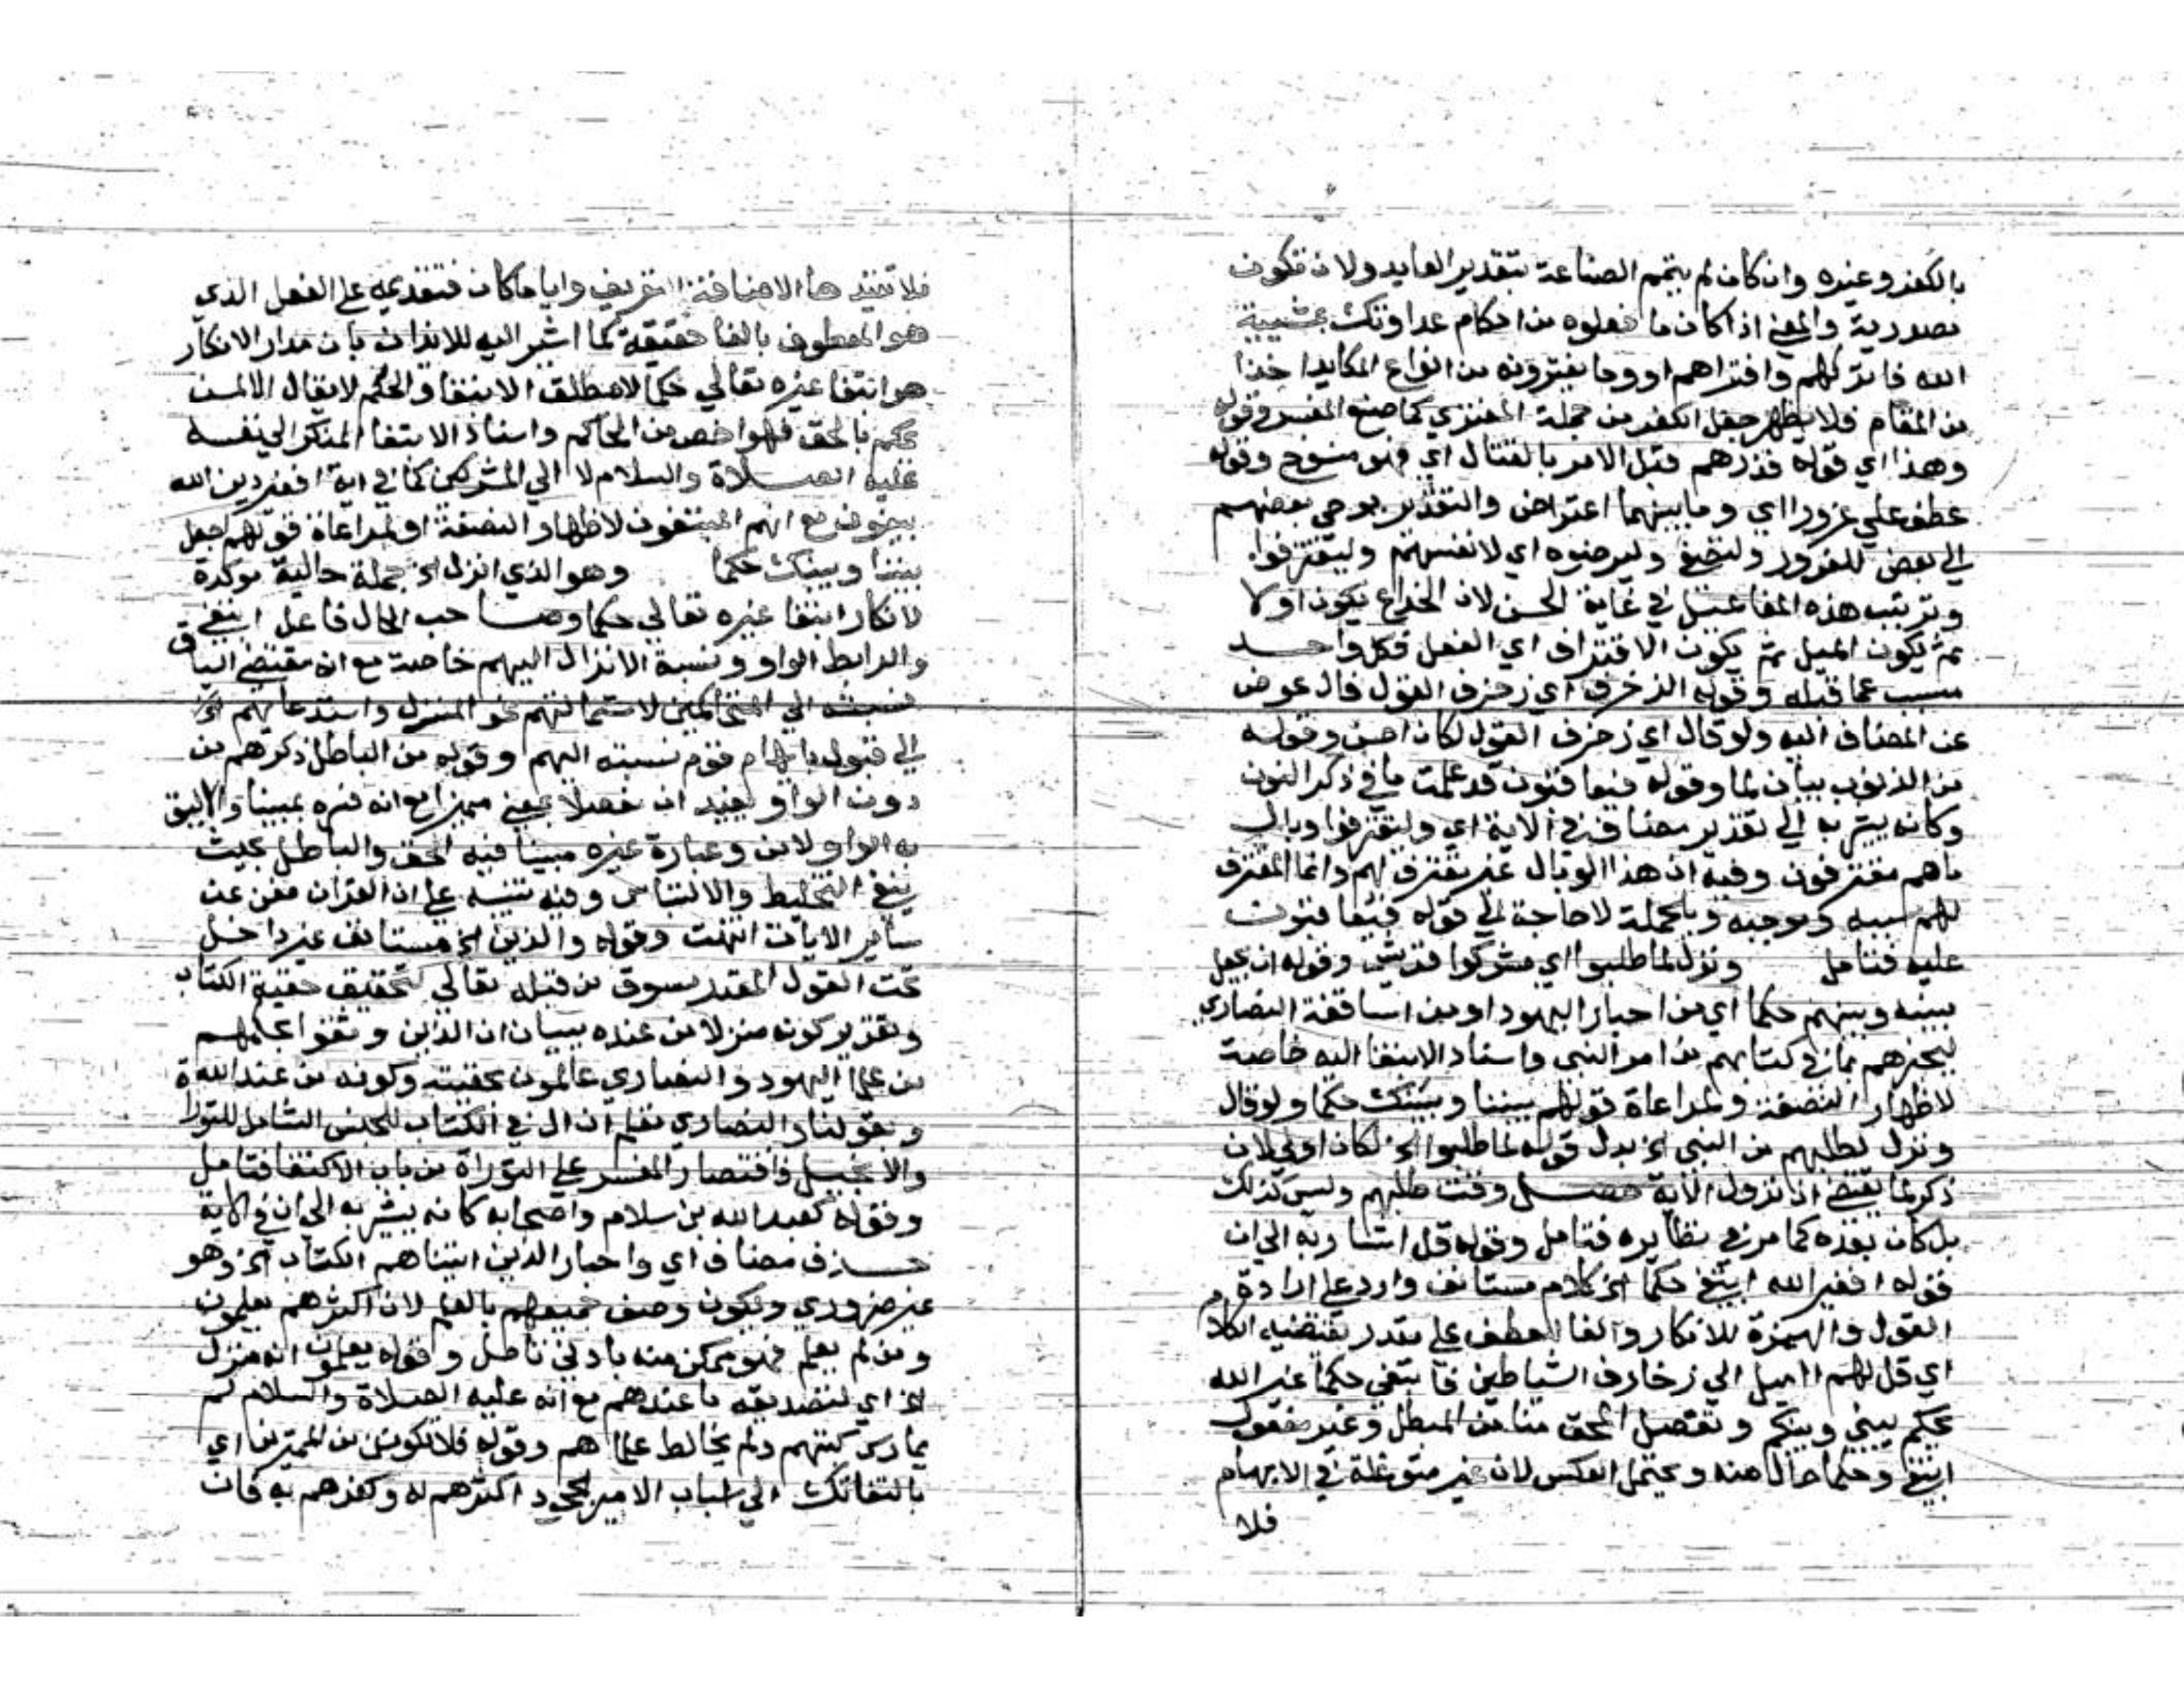 بالكفر وغيره وان كان لم يتم الصناعة بتقدير العايد ولان تكون
مصدرية والمعني اذا كان ما فعلوه من احكام عداوتك بمشيية
الله فاتركهم وافتراهم او وما يفترونه من انواع المكايد اخذا
من المقام فلا يظهر جعل الكفر من جملة المفتري كما صنع المفسر وقوله
وهذا اي قوله فذرهم قبل الامر بالقتال اي فهو منسوخ وقوله
عطف علي غرورا اي وما بينهما اعتراض والتقدير يوحي بعضهم
الي بعض للغرور ولتصغي وليرضوه اي لانفسهم وليقترفوا
وترتيب هذه المفاعيل في غاية الحسن لان الخداع يكون اولا
ثم يكون الميل ثم يكون الاقتراف اي الفعل فكل واحد
مسبب عما قبله وقوله الزخرف اي زخرف القول فال عوض
عن المضاف اليه ولو قال اي زخرف القول لكان احسن وقوله
من الذنوب بيان لما وقوله فيعاقبون قد علمت ما في ذكر النون
وكانه يشير به الي تقدير مضاف في الاية اي وليقترفوا وبال
ما هم مقترفون وفيه ان هذا الوبال غير مقترف لهم وانما المقترف
لهم سببه وموجبه وبالجملة لا حاجة الي قوله فيعاقبون
عليه فتامل ونزل لما طلبوا اي مشركوا قريش وقوله ان يجعل
بينه وبينهم حكما اي من احبار اليهود او من اساقفة النصاري
ليخبرهم بما في كتابهم من امر النبي واسناد الابتغا اليه خاصة
لاظهار النصفة ولمراعاة قولهم بيننا وبينك حكما ولو قال
ونزل لطلبهم من النبي الخ بدل قوله لما طلبوا الخ لكان اولي لان
ذكر لما يقتضي ان نزول الاية حصل وقت طلبهم وليس كذلك
بل كان بعده كما مر في نظايره فتامل وقوله قل اشار به الي ان
قوله افغير الله ابتغي حكما الخ كلام مستانف وارد علي ارادة
القول والهمزة للانكار والفا للعطف علي مقدر يقتضيه الكلام
اي قل لهم ااميل الي زخارف الشياطين فابتغي حكما غير الله
يحكم بيني وبينكم ويفصل المحق منا من المبطل وغير مفعول
ابتغي وحكما حال منه ويحتمل العكس لان غير متوغلة في الابهام
فلا
فلا تفيدها الاضافة التعريف واياما كان فتقديمه علي الفعل الذي
هو المعطوف بالفا حقيقة كما اشير اليه للايذان بان مدار الانكار
هو ابتغا غيره تعالي حكما لا مطلق الابتغا والحكم لا يقال الا لمن
يحكم بالحق فهو اخص من الحاكم واسناد الابتغا المنكر الي نفسه
عليه الصلاة والسلام لا الي المشركين كما في اية افغير دين الله
يبغون مع انهم المبتغون لاظهار النصفة او لمراعاة قولهم اجعل
بيننا وبينك حكما وهو الذي انزل الخ جملة حالية موكدة
لانكار ابتغا غيره تعالي حكما وصاحب الحال فاعل ابتغي
والرابط الواو ونسبة الانزال اليهم خاصة مع ان مقتضي السياق
نسبته الي المتحاكمين لاستمالتهم نحو المنزل واستدعايهم الخ
الي قبوله بايهام قوم نسبته اليهم وقوله من الباطل ذكرهم من
دون الواو يفيد ان مفصلا بمعني مميزا مع انه فسره بمبينا والاليق
به الواو لا من وعبارة غيره مبينا فيه الحق والباطل بحيث
ينفي التخليط والالتباس وفيه تنبيه علي ان القران مغن عن
ساير الايات انتهت وقوله والذين الخ مستانف غير داخل
تحت القول المقدر مسوق من قبله تعالي لتحقيق حقية الكتاب
وتقدير كونه منزلا من عنده ببيان ان الذين وثقوا بعلمهم
من علما اليهود والنصاري عالمون بحقيته وكونه من عند الله
وبقولنا والنصاري تعلم ان ال في الكتاب للجنس الشامل للتوراة
والانجيل واقتصار المفسر علي التوراة من باب الاكتفا فتامل
وقوله كعبد الله بن سلام واصحابه كانه يشير به الي ان في الاية
حذف مضاف اي واحبار الذين اتيناهم الكتاب الخ وهو
غير ضروري ويكون وصف جميعهم بالعلم لان اكثرهم يعلمون
ومن لم يعلم فهو متمكن منه بادني تامل وقوله يعلمون انه منزل
الخ اي لتصديقه ما عندهم مع انه عليه الصلاة والسلام لم
يمارس كتبهم ولم يخالط علماهم وقوله فلا تكونن من الممترين اي
بالتفاتك الي اسباب الامترا بجحود اكثرهم له وكفرهم به فان